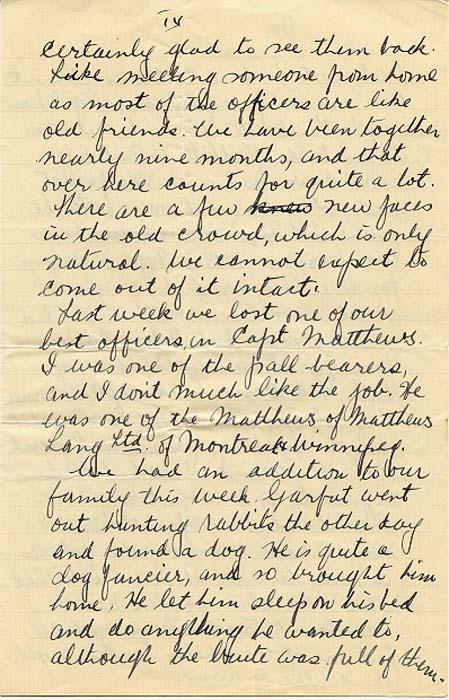 IV
certainly glad to see them back.
Like meeting someone from home
as most of the officers are like
old friends. We have been together
nearly nine months, and that
over here counts for quite a lot.
There are a few knew new faces
in the old crowd, which is only
natural. We cannot expect to
come out of it intact.
Last week we lost one of our
best officers, in Capt Matthews.
I was one of the pall bearers,
and I don't much like the job. He
was one of the Matthews, of Matthews
Lang Ltd. of Montreal & Winnipeg.
We had an addition to our
family this week. Garfut went
out hunting rabbits the other day
and found a dog. He is quite a
dog fancier, and so brought him
home. He let him sleep on his bed
and do anything he wanted to,
although the brute was full of them.